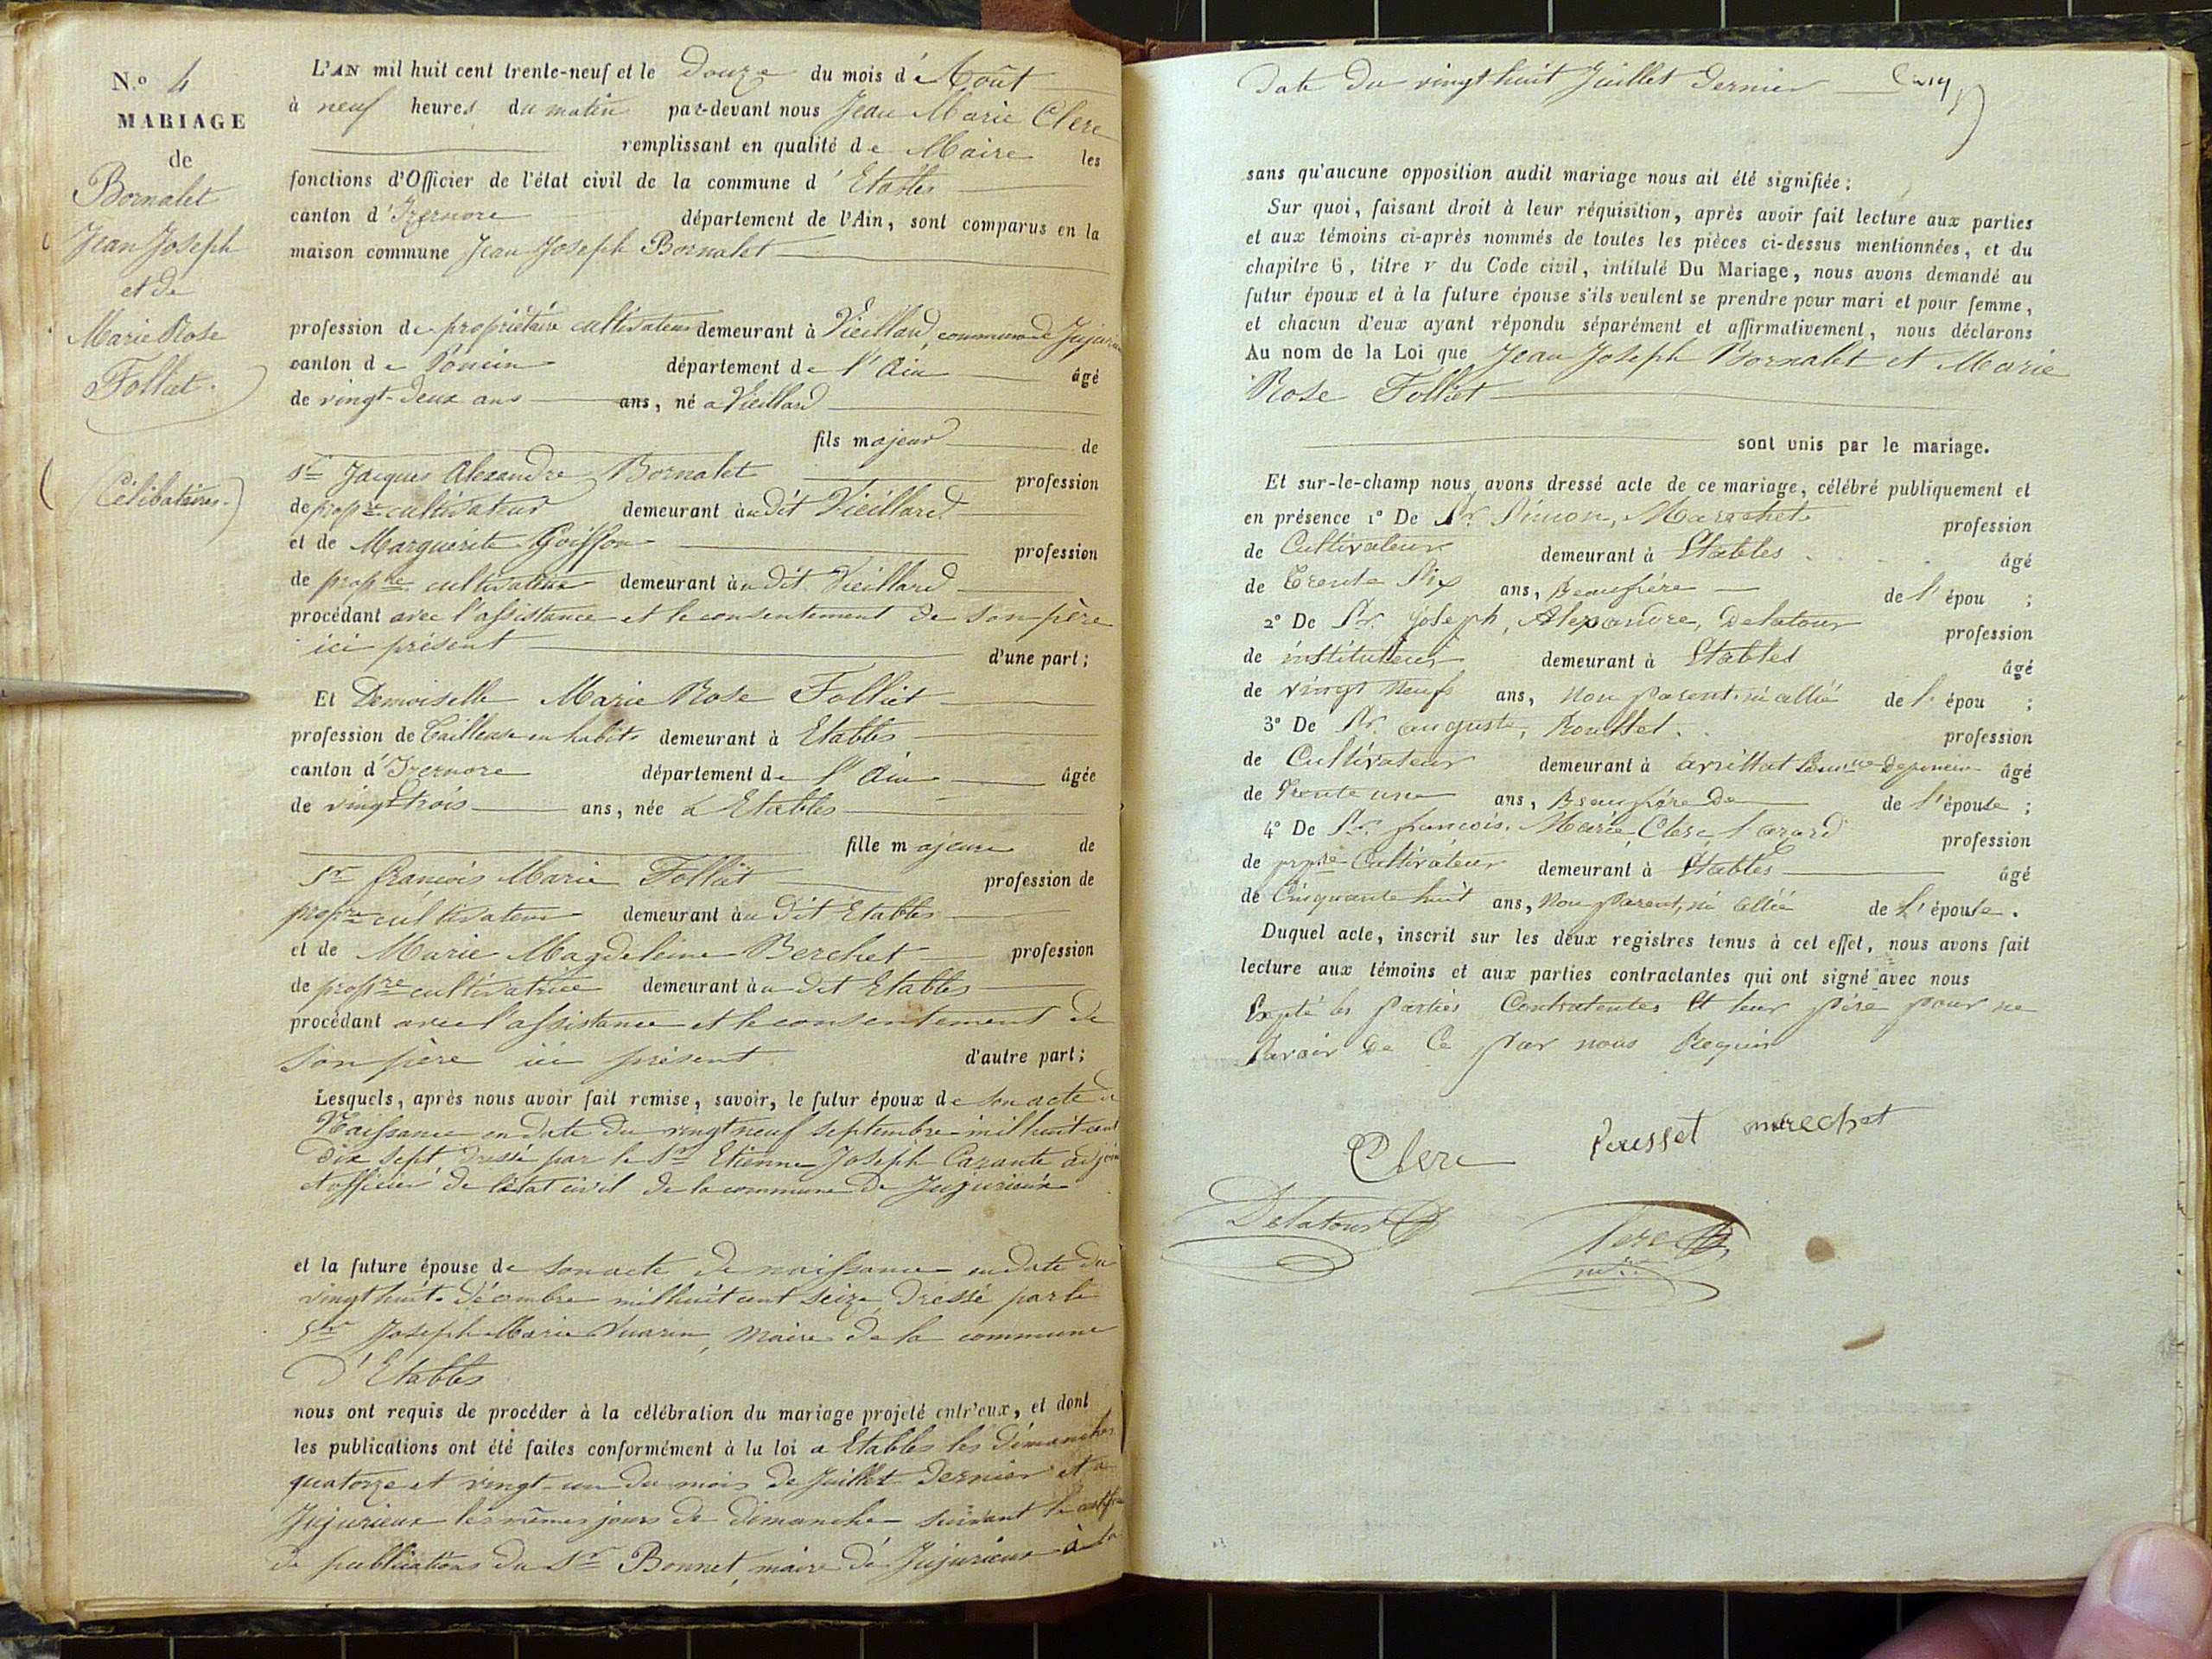 N.o 4
MARIAGE
de
Bornalet
Jean Joseph
et de
Marie Rose
Folliet.
(Célibataires.)
L'AN mil huit cent trente-neuf et le douze du mois d'Août
à neuf heures du matin par-devant nous Jean Marie Clerc
remplissant en qualité de Maire les
fonctions d'Officier de l'état civil de la commune d'Etables
canton d'Izernore département de l'Ain, sont comparus en la
maison commune Jean Joseph Bornalet
profession de propriétaire cultivateur demeurant à Vieillard, commune de Jujurieux
canton de Poncin département de l'Ain âgé
de vingt-deux ans ans, né a Vieillard
fils majeur de
Sr Jacques Alexandre Bornalet profession
de propre cultivateur demeurant audit Vieillard
et de Marguerite Goiffon profession
de propre cultivatrice demeurant audit Vieillard
procédant avec l'assistance et le consentement de son père
ici présent d'une part;
Et Demoiselle Marie Rose Folliet
profession de Tailleuse en habits demeurant à Etables
canton d'Izernore département de l'Ain âgée
de vingt trois ans, née à Etables
fille majeure de
Sr françois Marie Folliet profession de
propre cultivateur demeurant audit Etables
et de Marie Magdeleine Berchet profession
de propre cultivatrice demeurant audit Etables
procédant avec l'assistance et le consentement de
son père ici présent d'autre part;
Lesquels, après nous avoir fait remise, savoir, le futur époux de son acte de
Naissance en date du vingt neuf septembre mil huit cent
dix sept dressé par le Sr Etienne Joseph adjoint
et officier de l'état civil de la commune de Jujurieux
et la future épouse de son acte de naissance en date du
vingt huit Décembre mil huit cent seize, dressé par le
Sr Joseph Marie Vuarin, Maire de la commune
d'Etables
nous ont requis de procéder à la célébration du mariage projeté entr'eux, et dont
les publications ont été faites conformément à la loi a Etables les dimanches
quatorze et vingt-un du mois de Juillet dernier et a
Jujurieux les mêmes jours de dimanche suivant le certificat
de publications du Sr Bonnet, maire de Jujurieux à la
Date du vingt huit Juillet dernier
sans qu'aucune opposition audit mariage nous ait été signifiée;
Sur quoi, faisant droit à leur réquisition, après avoir fait lecture aux parties
et aux témoins ci-après nommés de toutes les pièces ci-dessus mentionnées, et du
chapitre 6, titre v du Code civil, intitulé Du Mariage, nous avons demandé au
futur époux et à la future épouse s'ils veulent se prendre pour mari et pour femme,
et chacun d'eux ayant répondu séparément et affirmativement, nous déclarons
Au nom de la Loi que Jean Joseph Bornalet et Marie
Rose Folliet
sont unis par le mariage.
Et sur-le-champ nous avons dressé acte de ce mariage, célébré publiquement et
en présence 1° De Sr. Simon, Marechet profession
de Cultivateur demeurant à Etables âgé
de Trente Six ans, Beaufrére de l'épou ;
2° De Sr. Joseph, Alexandre, Delatour profession
de instituteur demeurant à Etables âgé
de vingt neufs ans, non parent ni allié de l'épou ;
3° De Sr. auguste, Rousset. profession
de Cultivateur demeurant à âgé
de Trente une ans, Beaufrére de de l'épouse ;
4° De Sr. françois, Marie, Clerc profession
de propre Cultivateur demeurant à Etables âgé
de Cinquante huit ans, Non parent, ni allié de L'épouse.
Duquel acte, inscrit sur les deux registres tenus à cet effet, nous avons fait
lecture aux témoins et aux parties contractantes qui ont signé avec nous
Expté les parties Contratentes Et leur pére pour ne
Savoir de Ce par nous Requis
Clerc Rousset marechet
Delatour Clerc